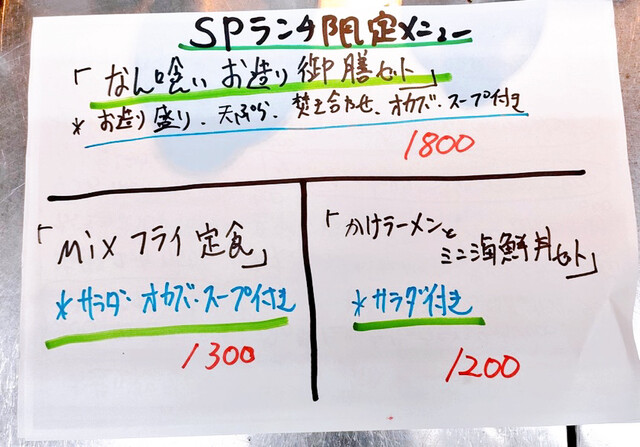 SPランチ限定メニュー
「なん喰い お造り御膳セット」
*お造り盛り、天ぷら、焚き合わせ、オカズ・スープ付き
1800
「Mixフライ定食」
*サラダ・オカズ・スープ付き
1300
「かけラーメンと
ミニ海鮮丼セット」
*サラダ付き
1200